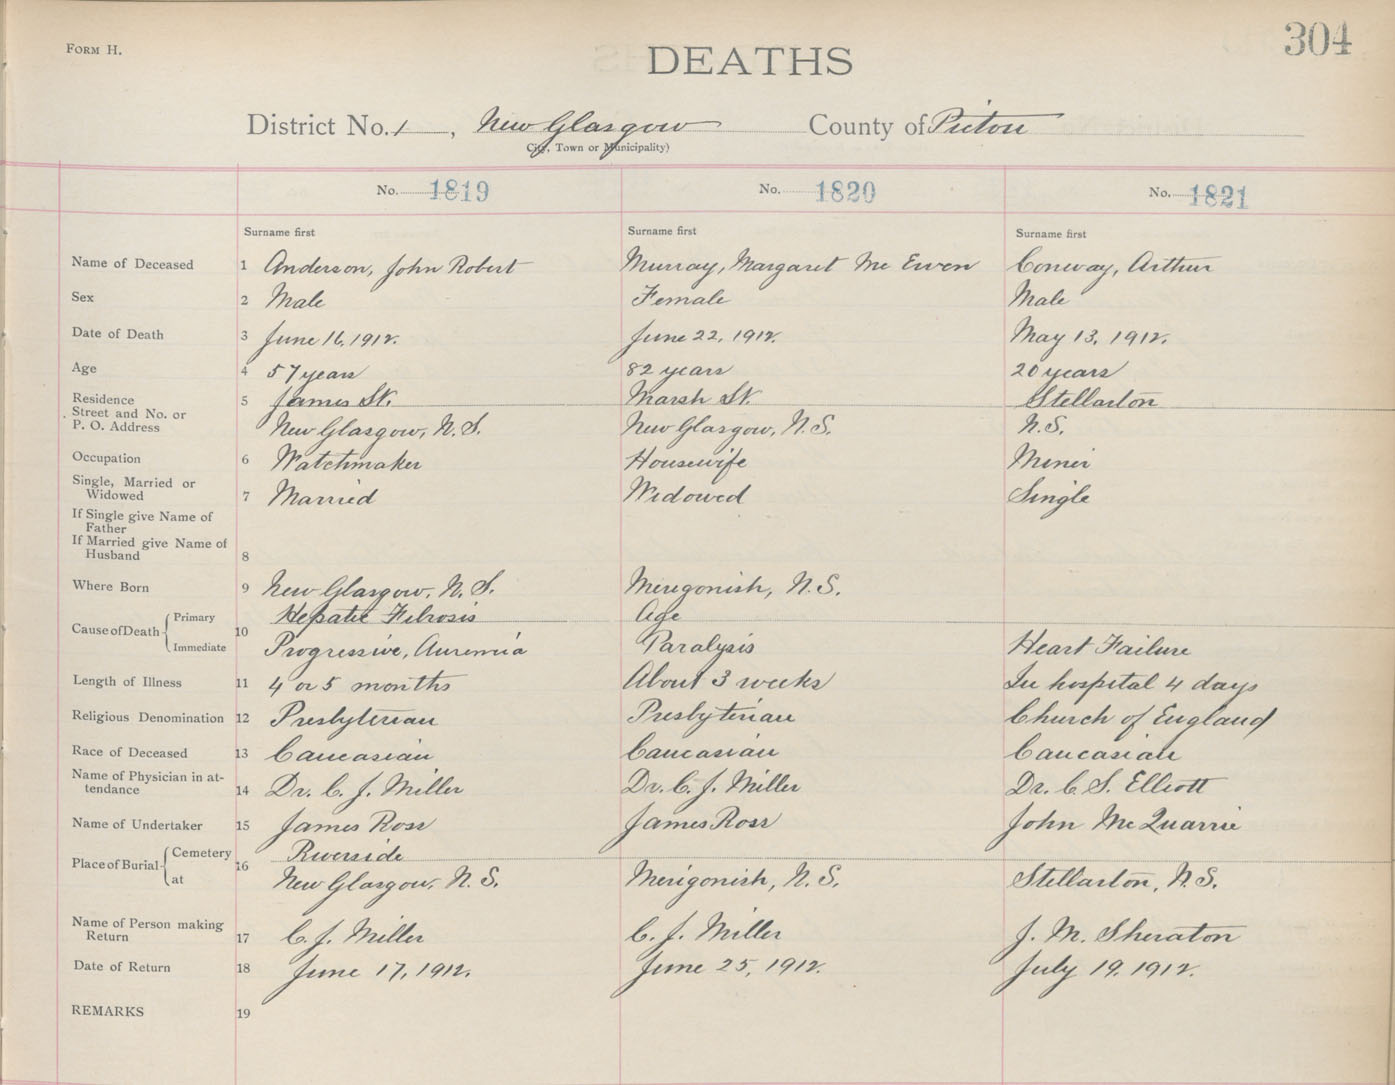 FORM H.
304
DEATHS
District No. 1, New Glasgow County of Pictou
City, Town or Municipality)
No. 1819 No. 1820 No. 1821
Surname first Surname first Surname first
Name of Deceased 1 Anderson, John Robert Murray, Margaret Mc Ewen Conway, Arthur
Sex 2 Male Female Male
Date of Death 3 June 16, 1912. June 22, 1912. May 13, 1912.
Age 4 57 years 82 years 20 years
Residence 5 James St. Marsh St. Stellarton
Street and No. or
P. O. Address New Glasgow, N.S. New Glasgow, N.S. N.S.
Occupation 6 Watchmaker Housewife Miner
Single, Married or
Widowed 7 Married Widowed Single
If Single give Name of
Father
If Married give Name of
Husband 8
Where Born 9 New Glasgow, N.S. Merigonish, N.S.
Cause of Death Primary Hepatic Fibrosis Age
10
Immediate Progressive, Auremia Paralysis Heart Failure
Length of Illness 11 4 or 5 months About 3 weeks In hospital 4 days
Religious Denomination 12 Presbyterian Presbyterian Church of England
Race of Deceased 13 Caucasian Caucasian Caucasian
Name of Physician in at-
tendance 14 Dr. C. J. Miller Dr. C. J. Miller Dr. C. S. Elliott
Name of Undertaker 15 James Ross James Ross John McQuarrie
Place of Burial Cemetery Riverside
16
at New Glasgow, N.S. Merigonish, N.S. Stellarton, N.S.
Name of Person making
Return 17 C. J. Miller C. J. Miller J. M. Sheraton
Date of Return 18 June 17, 1912. June 25, 1912. July 19, 1912.
REMARKS 19